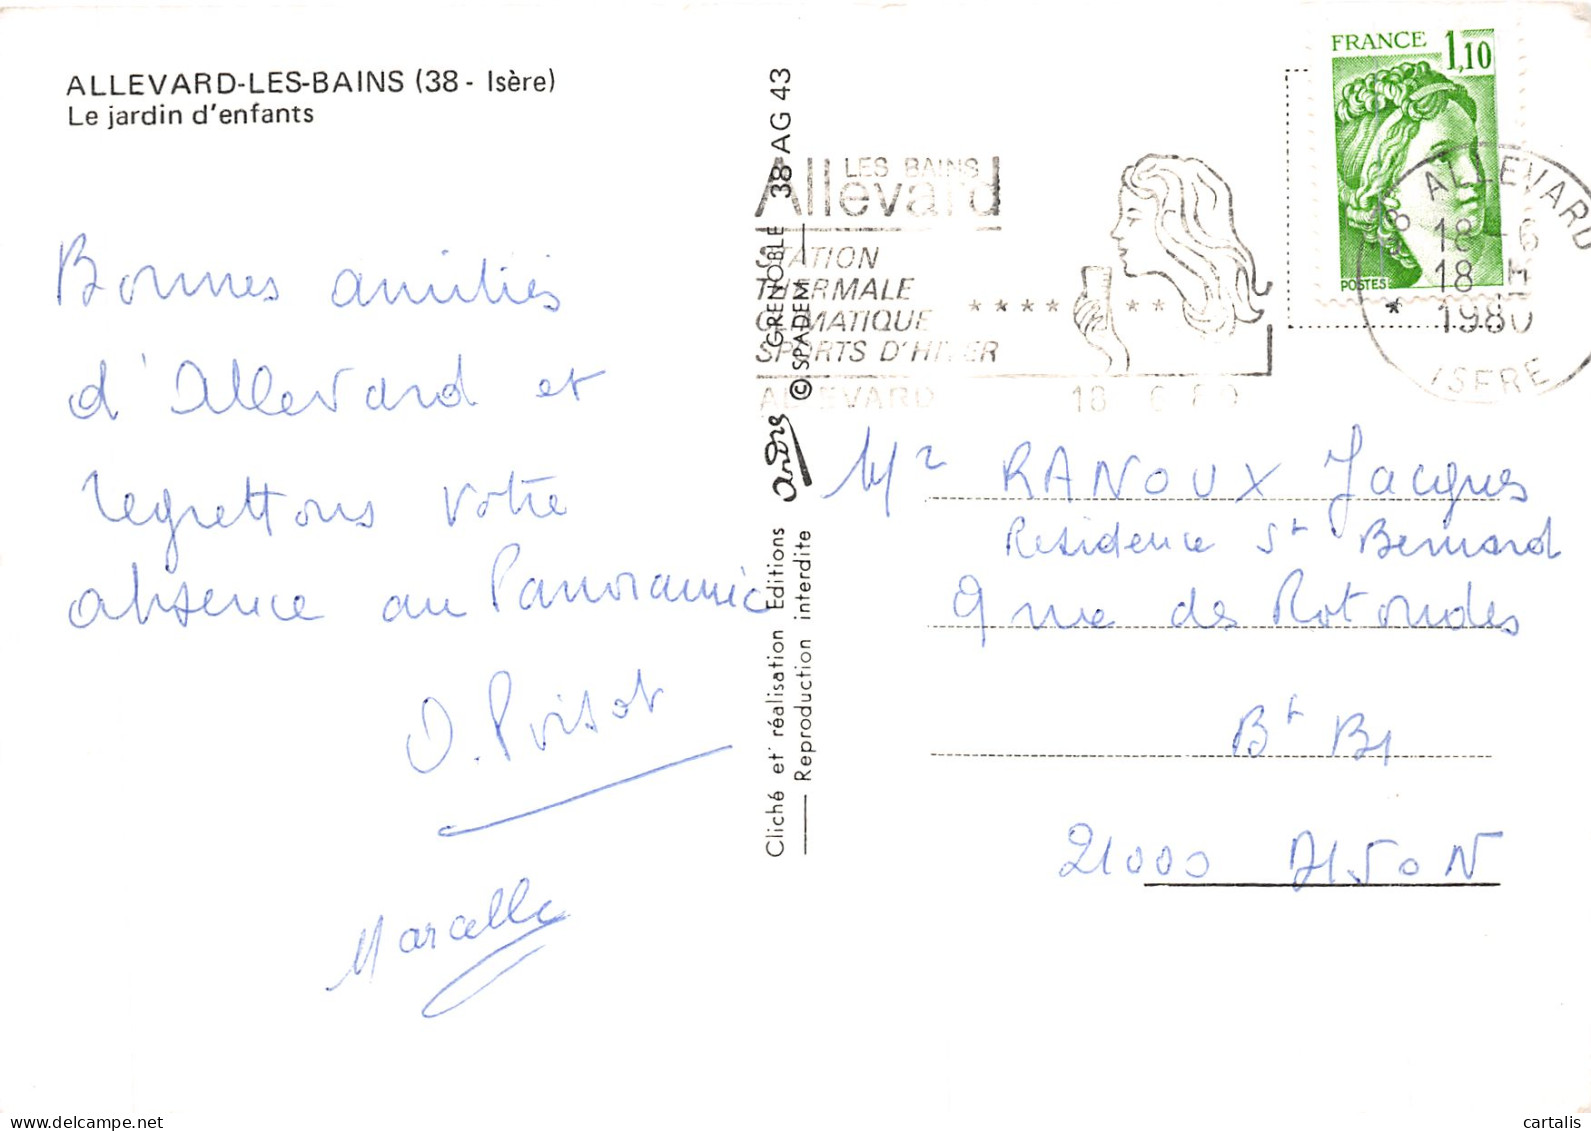 ALLEVARD-LES-BAINS (38 - Isère)
Le jardin d'enfants
Bonnes amitiés
d'Allevard et
regrettons votre
absence au Panoramic
O. Poisot
Marcelle
Cliché et réalisation Editions andre GRENOBLE 38 AG 43
Reproduction interdite © SPADEM
LES BAINS
Allevard
STATION
THERMALE
CLIMATIQUE
SPORTS D'HIVER
ALLEVARD 18 6 80
FRANCE 1,10
POSTES
38 ALLEVARD
18 - 6
18 H
* 1980
ISERE
Mr RANOUX Jacques
Residence St Bernard
9 rue des Rotondes
Bt B1
21000 DIJON
https://www.delcampe.net
cartalis